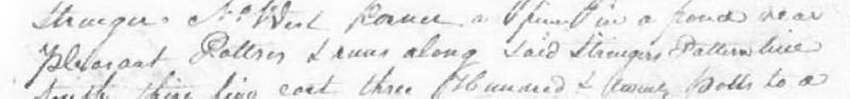 Strangers No. West Corner a pine in a pond near
Pleasant Potters & runs along said Strangers Pattern line
South thirty five east three Hundred & twenty Polls to a